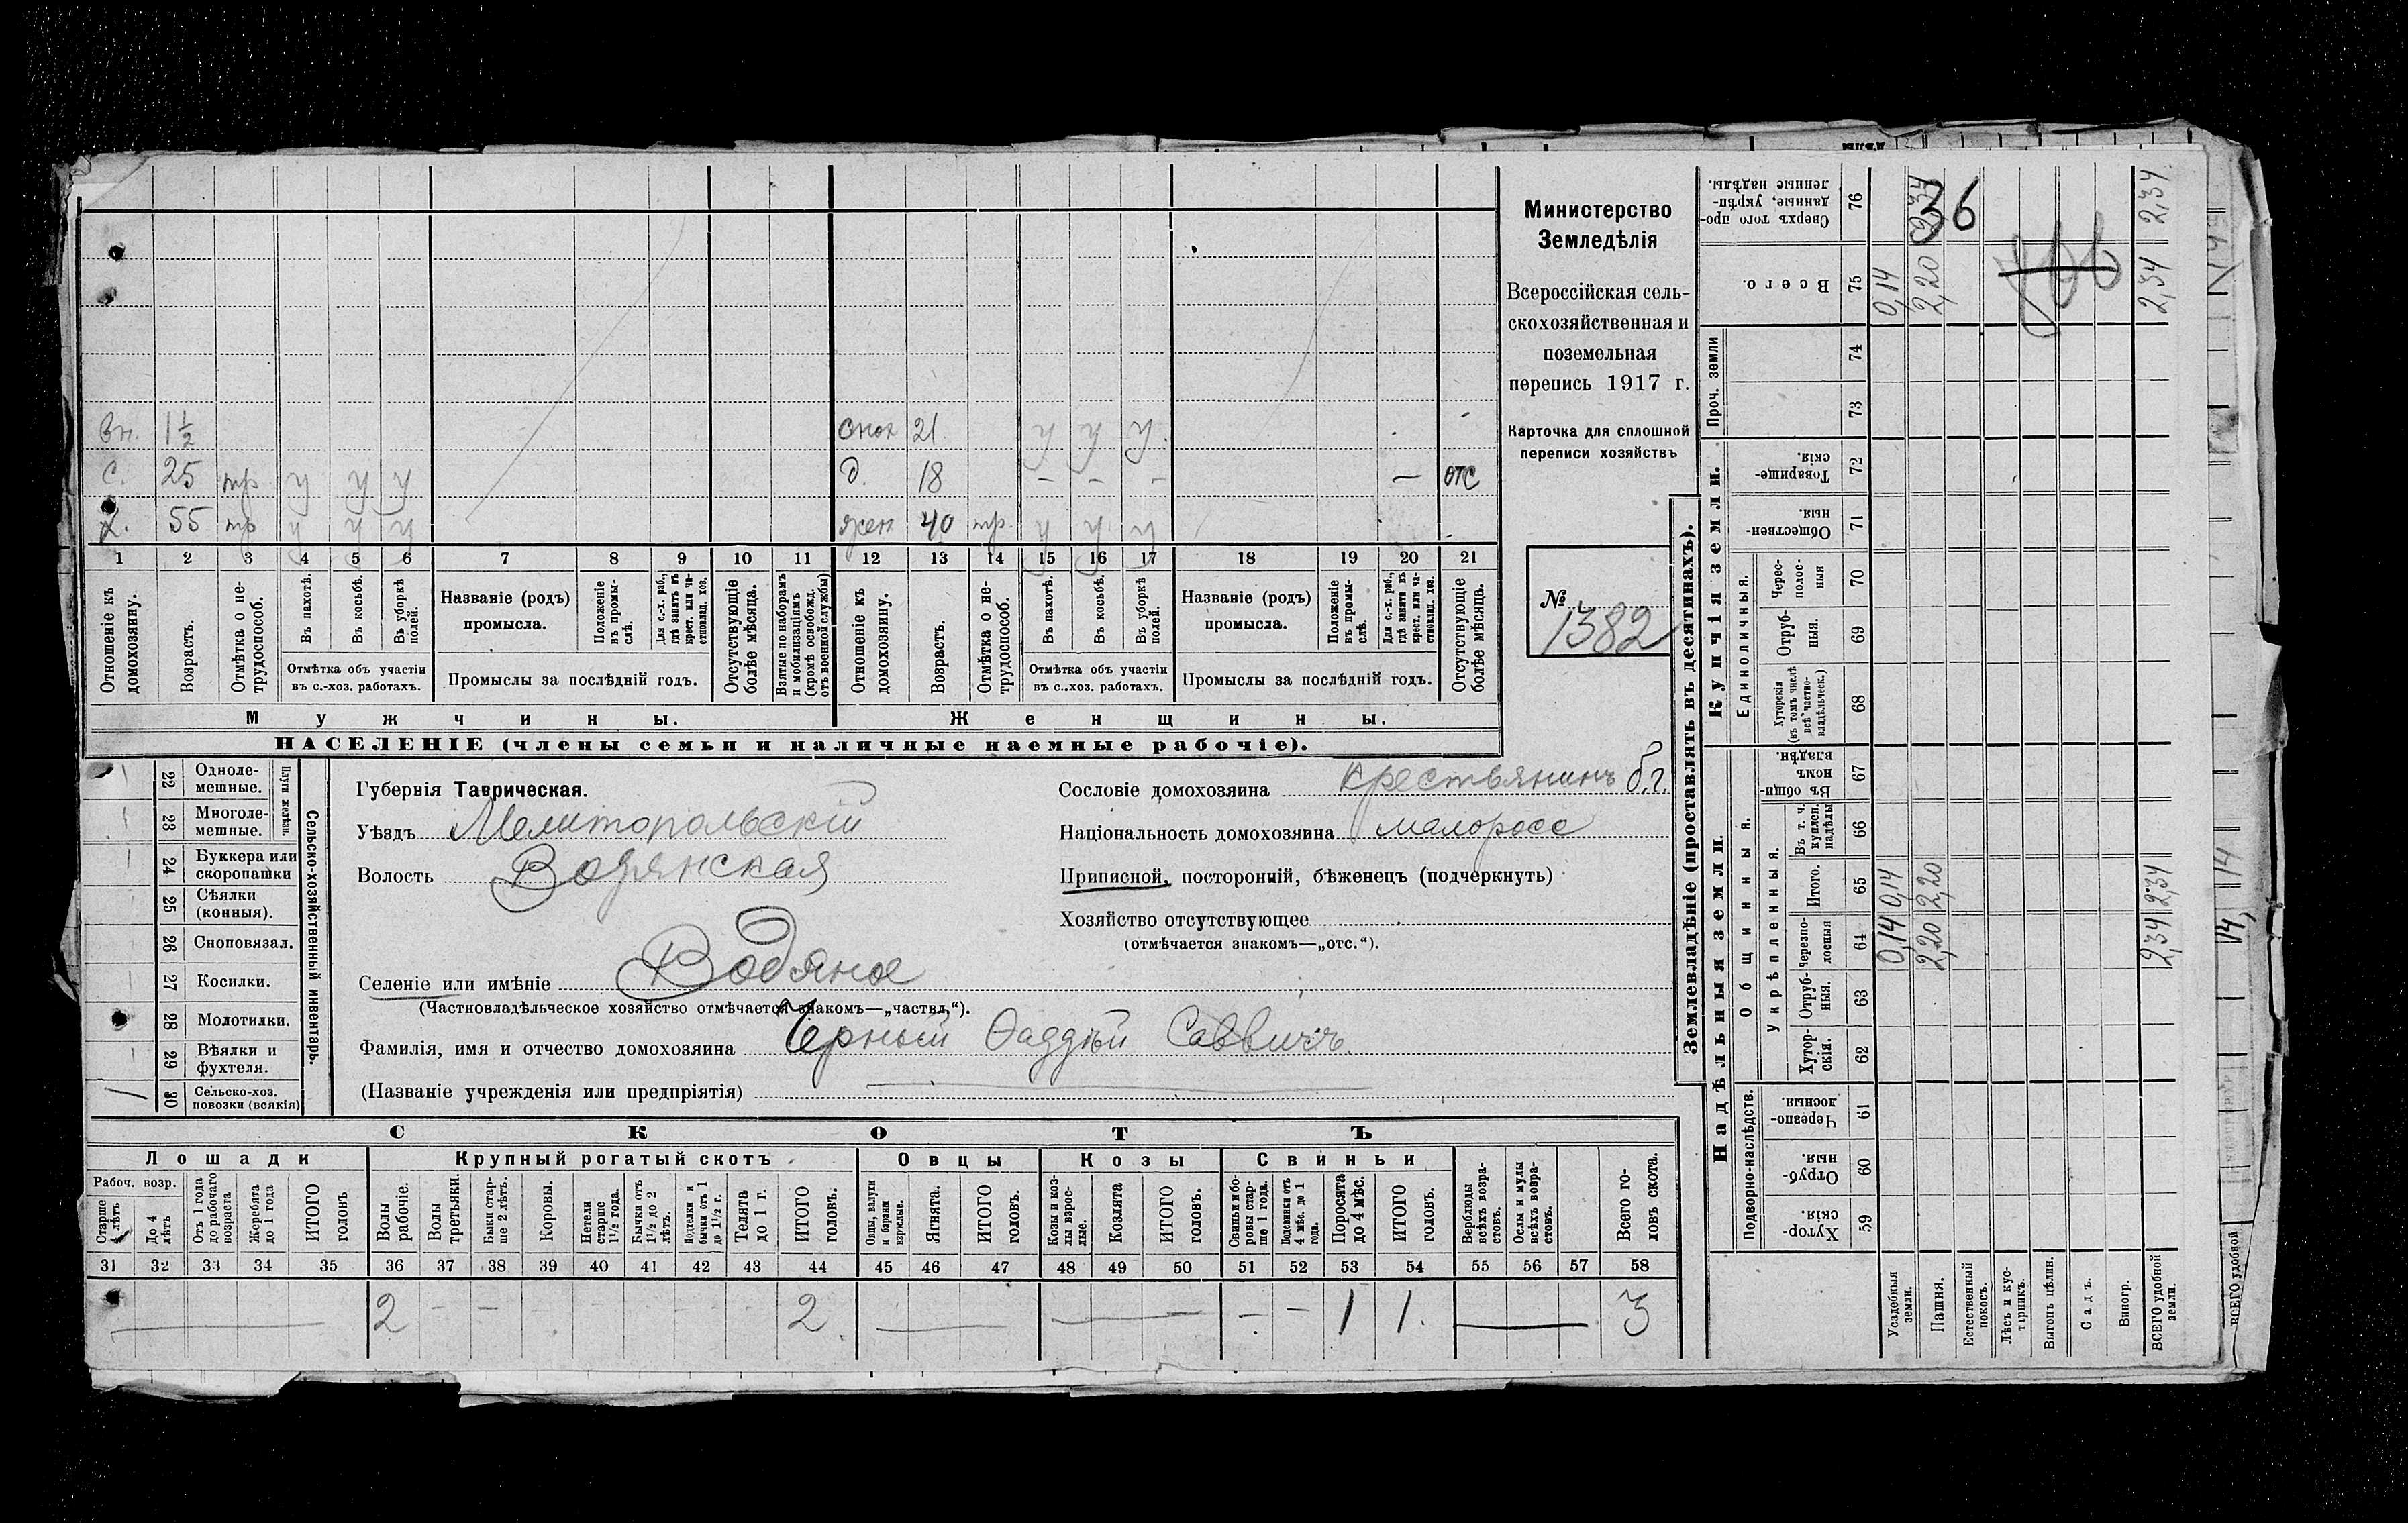 вн. 1½
снох 21 у у у
с. 25 тр у у у
д. 18 – – – — отс
х. 55 тр у у у
жен 40 тр. у у у
1 2 3 4 5 6 7 8 9 10 11 12 13 14 15 16 17 18 19 20 21
Отношеніе къ домохозяину.
Возрастъ.
Отмѣтка о не-
трудоспособ.
Въ пахотѣ.
Въ косьбѣ.
Въ уборкѣ
полей.
Отмѣтка объ участіи
въ с.-хоз. работахъ.
Названіе (родъ)
промысла.
Положеніе
въ промы-
слѣ.
Для с.-х. раб.,
гдѣ занятъ въ
крест. или ча-
стновлад. хоз.
Промыслы за послѣдній годъ.
Отсутствующіе
болѣе мѣсяца.
Взятые по наборамъ
и мобилизаціямъ
(кромѣ освобожд.
отъ военной службы)
Отношеніе къ
домохозяину.
Возрастъ.
Отмѣтка о не-
трудоспособ.
Въ пахотѣ.
Въ косьбѣ.
Въ уборкѣ
полей.
Отмѣтка объ участіи
въ с.-хоз. работахъ.
Названіе (родъ)
промысла.
Положеніе
въ промы-
слѣ.
Для с.-х. раб.,
гдѣ занята въ
крест. или ча-
стновлад. хоз.
Промыслы за послѣдній годъ.
Отсутствующіе
болѣе мѣсяца.
Мужчины.
Женщины.
НАСЕЛЕНІЕ (члены семьи и наличные наемные рабочіе).
Министерство
Земледѣлія
Всероссійская сель-
скохозяйственная и
поземельная
перепись 1917 г.
Карточка для сплошной
переписи хозяйствъ
№
1382
22 Одноле-
мешные.
23 Многоле-
мешные.
Плуги желѣзн.
24 Буккера или
скоропашки
25 Сѣялки
(конныя).
26 Сноповязал.
27 Косилки.
28 Молотилки.
29 Вѣялки и
фухтеля.
/ 30 Сельско-хоз.
повозки (всякія)
Сельско-хозяйственный инвентарь.
Губернія Таврическая.
Уѣздъ Мелитопольскій
Волость Водянская
Селеніе или имѣніе Водяное
(Частновладѣльческое хозяйство отмѣчается знакомъ—„частвл.“).
Фамилія, имя и отчество домохозяина Черный Ѳаддѣй Саввичъ
(Названіе учрежденія или предпріятія)
Сословіе домохозяина крестьянинъ б.г.
Національность домохозяина малоросс
Приписной, посторонній, бѣженецъ (подчеркнуть)
Хозяйство отсутствующее
(отмѣчается знакомъ—„отс.“).
СКОТЪ
Лошади
Крупный рогатый скотъ
Овцы
Козы
Свиньи
Рабоч. возр.
Старше
4 лѣтъ
До 4
лѣтъ
Отъ 1 года
до рабочаго
возраста
Жеребята
до 1 года
ИТОГО
головъ
Волы
рабочіе.
Волы
третьяки.
Быки стар-
ше 2 лѣтъ.
Коровы.
Нетели
старше
1½ года.
Бычки отъ
1½ до 2
лѣтъ.
Подтелки и
бычки отъ 1
до 1½ г.
Телята
до 1 г.
ИТОГО
головъ.
Овцы, валухи
и бараны
взрослые.
Ягнята.
ИТОГО
головъ.
Козы и коз-
лы взрос-
лые.
Козлята
ИТОГО
головъ.
Свиньи и бо-
ровы стар-
ше 1 года.
Подсвинки отъ
4 мѣс. до 1
года.
Поросята
до 4 мѣс.
ИТОГО
головъ.
Верблюды
всѣхъ возра-
стовъ.
Ослы и мулы
всѣхъ возра-
стовъ.
Всего го-
ловъ скота.
31 32 33 34 35 36 37 38 39 40 41 42 43 44 45 46 47 48 49 50 51 52 53 54 55 56 57 58
— 2 – – – – – – – 2 — — – – 1 1 — 3
Землевладѣніе (проставлять въ десятинахъ).
Надѣльныя земли.
Купчія земли.
Проч. земли
Подворно-наслѣдств.
Общинныя.
Укрѣпленныя.
Единоличныя.
Хутор-
скія. 59
Отруб-
ныя. 60
Черезпо-
лосныя. 61
Хутор-
скія. 62
Отруб-
ныя. 63
Черезпо-
лосныя 64
Итого. 65
Въ т. ч.
куплен.
надѣлы 66
Въ общи-
номъ
владѣн. 67
Хуторскія
(въ томъ числѣ
всѣ частно-
владѣльческ.) 68
Отруб-
ныя. 69
Черес-
полос-
ныя 70
Обществен-
ныя. 71
Товарище-
скія. 72
73
74
Всего. 75
Сверхъ того про-
данные, укрѣп-
ленные надѣлы. 76
Усадебныя
земли. 0,14 0,14 0,14
Пашня. 2,20 2,20 2,20 2,34
Естественный
покосъ.
Лѣсъ и кус-
тарникъ.
Выгонъ цѣлин.
Садъ.
Виногр.
ВСЕГО удобной
земли. 2,34 2,34 2,34 2,34
36
ВСЕГО удобной